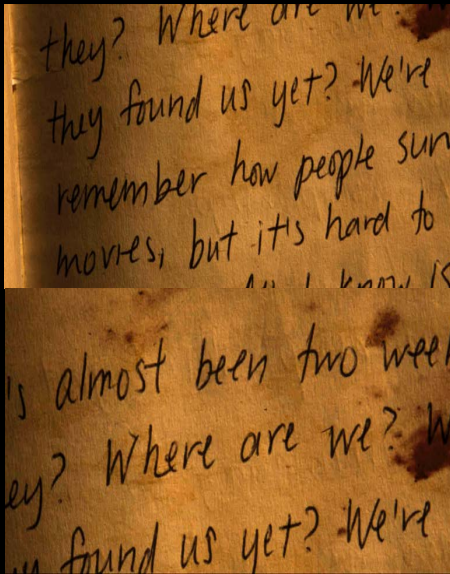 they? Where are we?
they found us yet? We're
remember how people
movies, but it's hard to
know is
's almost been two
ey? Where are we?
found us yet? We're